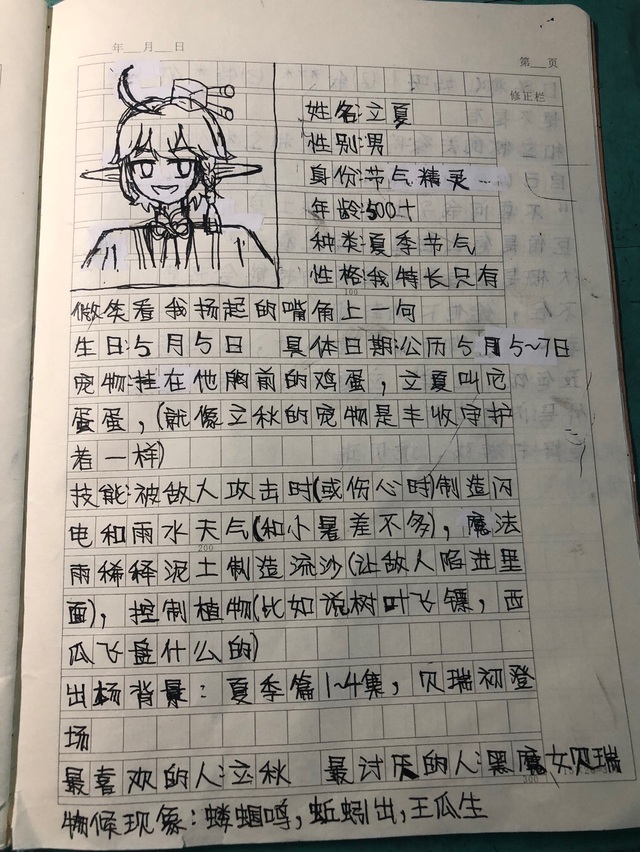 年 月 日
第 页
修正栏
姓名:立夏
性别:男
身份:节气精灵
年龄:500+
种类:夏季节气
性格:我特长只有
微笑看我扬起的嘴角上一句
生日:5月5日 具体日期:公历5月5~7日
宠物:挂在他胸前的鸡蛋,立夏叫它
蛋蛋,(就像立秋的宠物是丰收守护
者一样)
技能:被敌人攻击时(或伤心时)制造闪
电和雨水天气(和小暑差不多),魔法
200
雨稀释泥土制造流沙(让敌人陷进里
面),控制植物(比如说树叶飞镖,西
瓜飞盘什么的)
出场背景:夏季篇1~4集,贝瑞初登
场
最喜欢的人:立秋 最讨厌的人:黑魔女贝瑞
300
物候现象:蝼蝈鸣,蚯蚓出,王瓜生